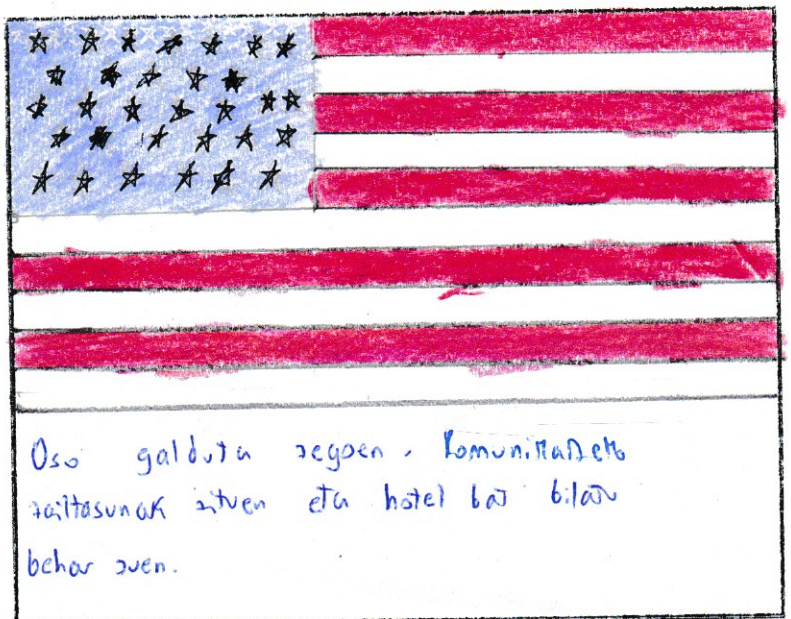 Oso galduta zegoen. Komunikatzeko
zailtasunak zituen eta hotel bat bilatu
behar zuen.